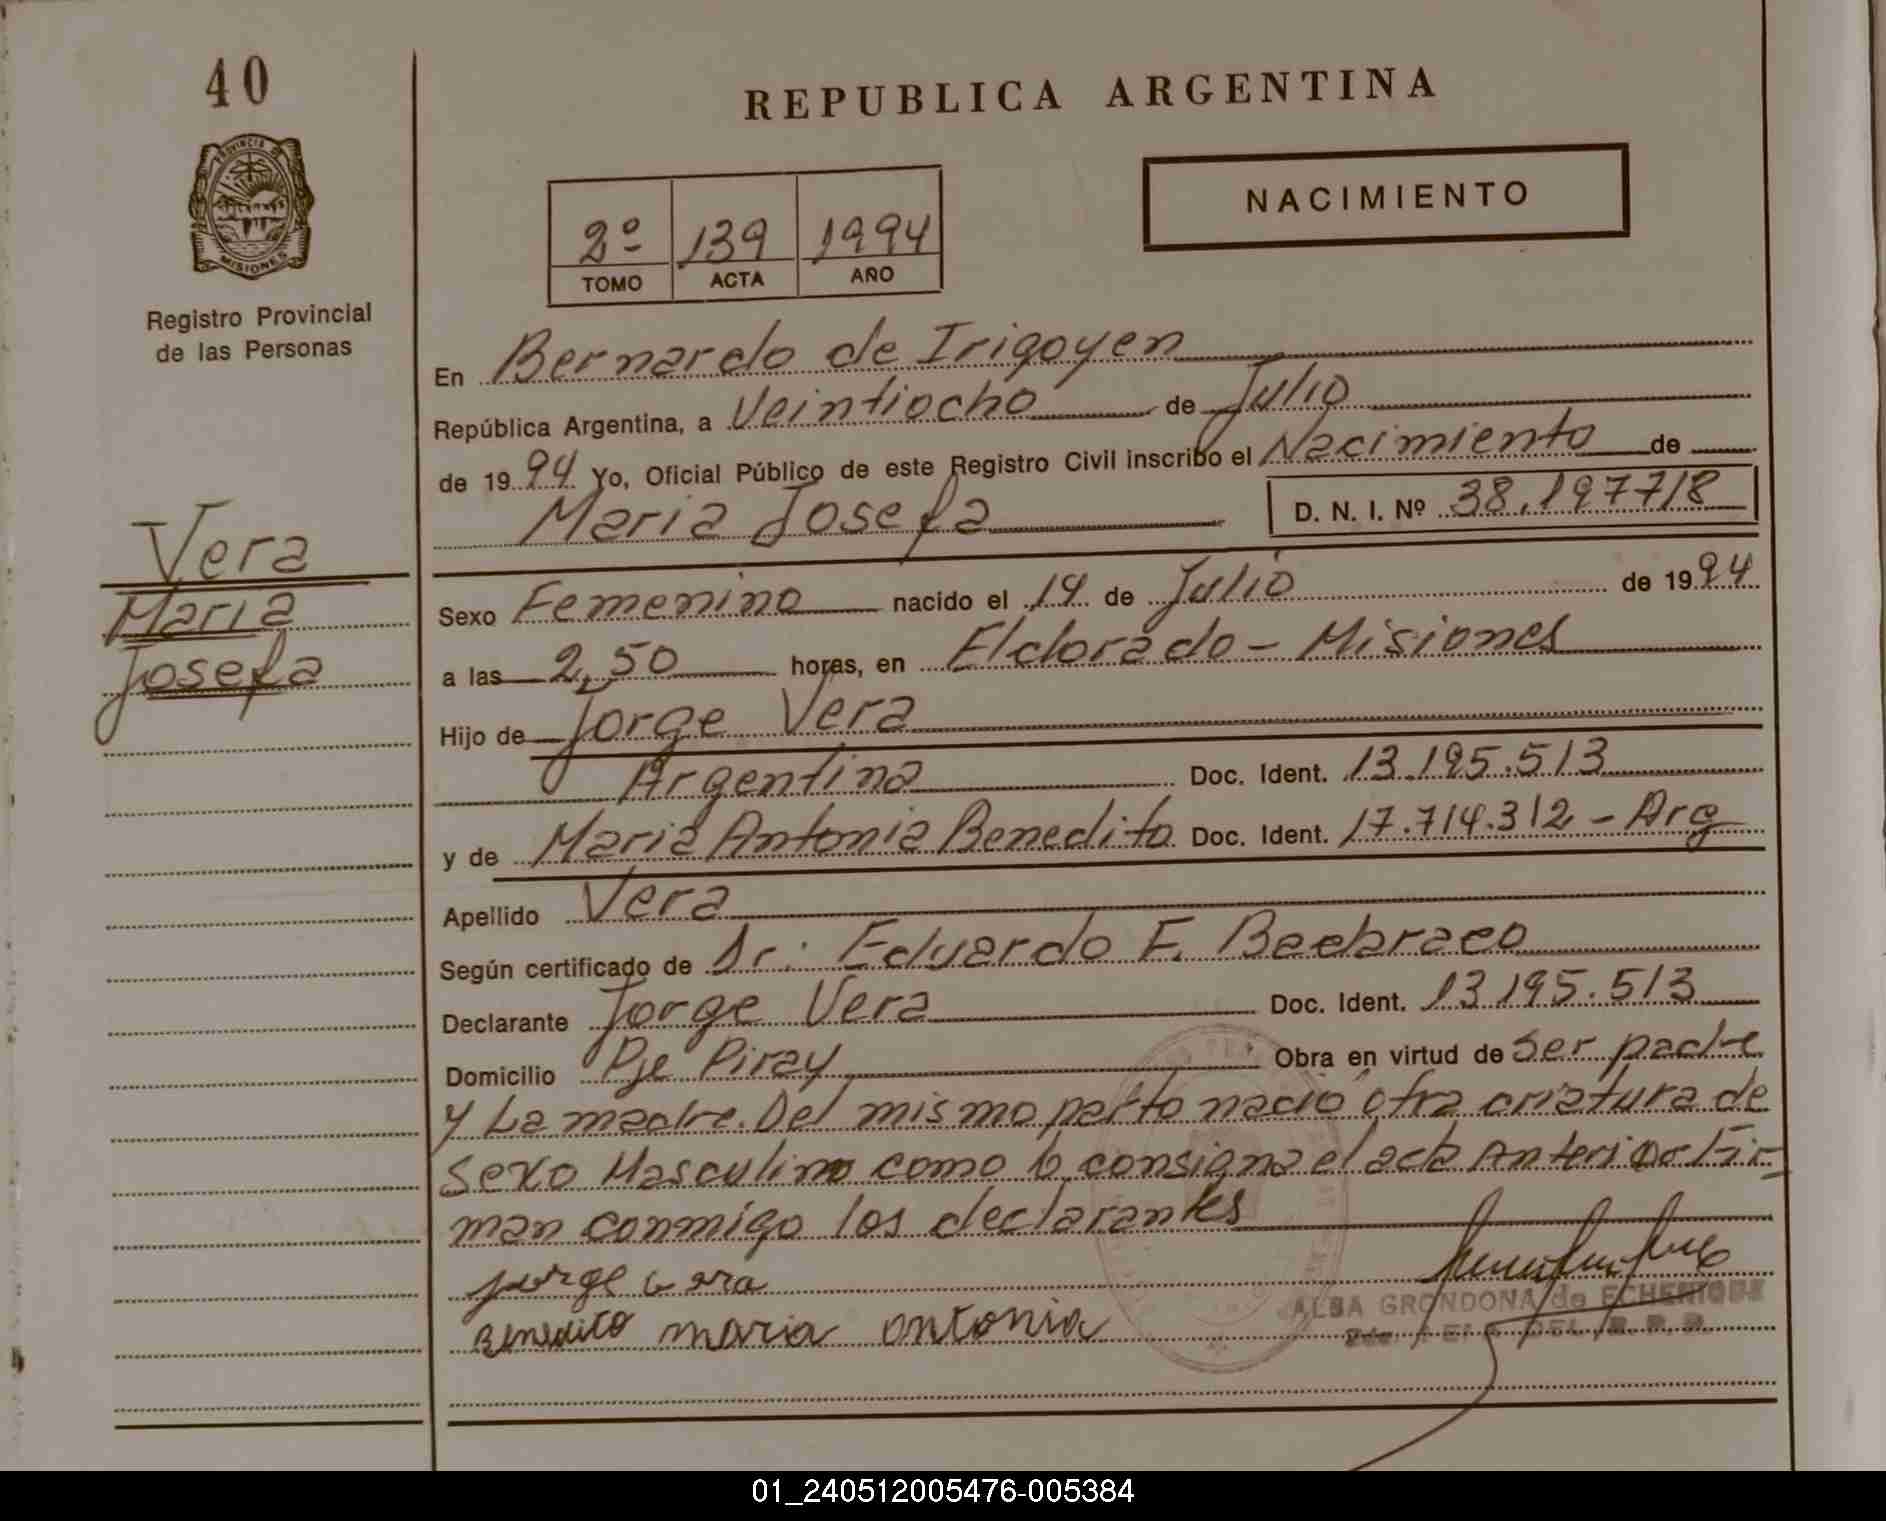 40
REPUBLICA ARGENTINA
PROVINCIA DE
MISIONES
NACIMIENTO
2º 139 1994
TOMO ACTA AÑO
Registro Provincial
de las Personas
En Bernardo de Irigoyen
República Argentina, a Veintiocho de Julio
de 1994 Yo, Oficial Público de este Registro Civil inscribo el Nacimiento de
Maria Josefa D. N. I. Nº 38.197718
Vera
Maria
Josefa
Sexo Femenino nacido el 14 de Julio de 1994
a las 2,50 horas, en Eldorado - Misiones
Hijo de Jorge Vera
Argentina Doc. Ident. 13.195.513
y de Maria Antonia Benedito Doc. Ident. 17.714.312 - Arg
Apellido Vera
Según certificado de Dr: Eduardo F.
Declarante Jorge Vera Doc. Ident. 13195.513
Domicilio Pje Piray Obra en virtud de Ser padre
y La madre. Del mismo parto nació otra criatura de
sexo Masculino como lo consigna el acta Anterior Fir-
man conmigo los declarantes
jorge vera
Benedito maria antonia
ALBA GRONDONA de ECHERIQUE
DEL R. P. P.
01_240512005476-005384